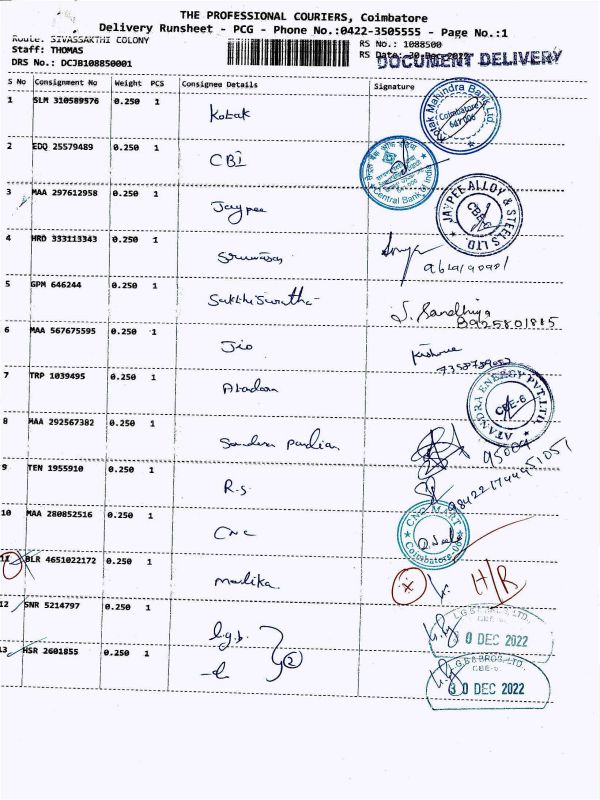 THE PROFESSIONAL COURIERS, Coimbatore
Delivery Runsheet - PCG - Phone No.:0422-3505555 - Page No.:1
Route: SIVASSAKTHI COLONY
RS No.: 1088500
Staff: THOMAS
RS Date: 30-Dec-2022
DOCUMENT DELIVERY
DRS No.: DCJB108850001
S No Consignment No Weight PCS Consignee Details Signature
1 SLM 310589576 0.250 1 Kotak
Kotak Mahindra Bank Ltd
Coimbatore
641 006
2 EDQ 25579489 0.250 1 CBI
Central Bank of India
3 MAA 297612958 0.250 1 Jaypee
JAYPEE ALLOY & STEELS LTD
4 HRD 333113343 0.250 1
5 GPM 646244 0.250 1
S. Sandhiya
8925801885
6 MAA 567675595 0.250 1 Jio
Kishore
7 TRP 1039495 0.250 1
ATANDRA ENERGY PVT. LTD.
CBE-6
8 MAA 292567382 0.250 1 Sundara Pandian
9 TEN 1955910 0.250 1 R.S.
10 MAA 280852516 0.250 1 CNC
CNC MART
Coimbatore-06
11 BLR 4651022172 0.250 1 Mallika
H/R
12 SNR 5214797 0.250 1 L.g.b.
L.G.B & BROS. LTD.
CBE-6.
30 DEC 2022
13 HSR 2601855 0.250 1 -do- 2
L.G.B & BROS. LTD.
CBE-6.
30 DEC 2022